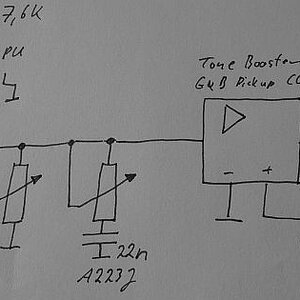 7,6K
PU
Tone Booster
G&B Pickup CC
- +
22n
A223J